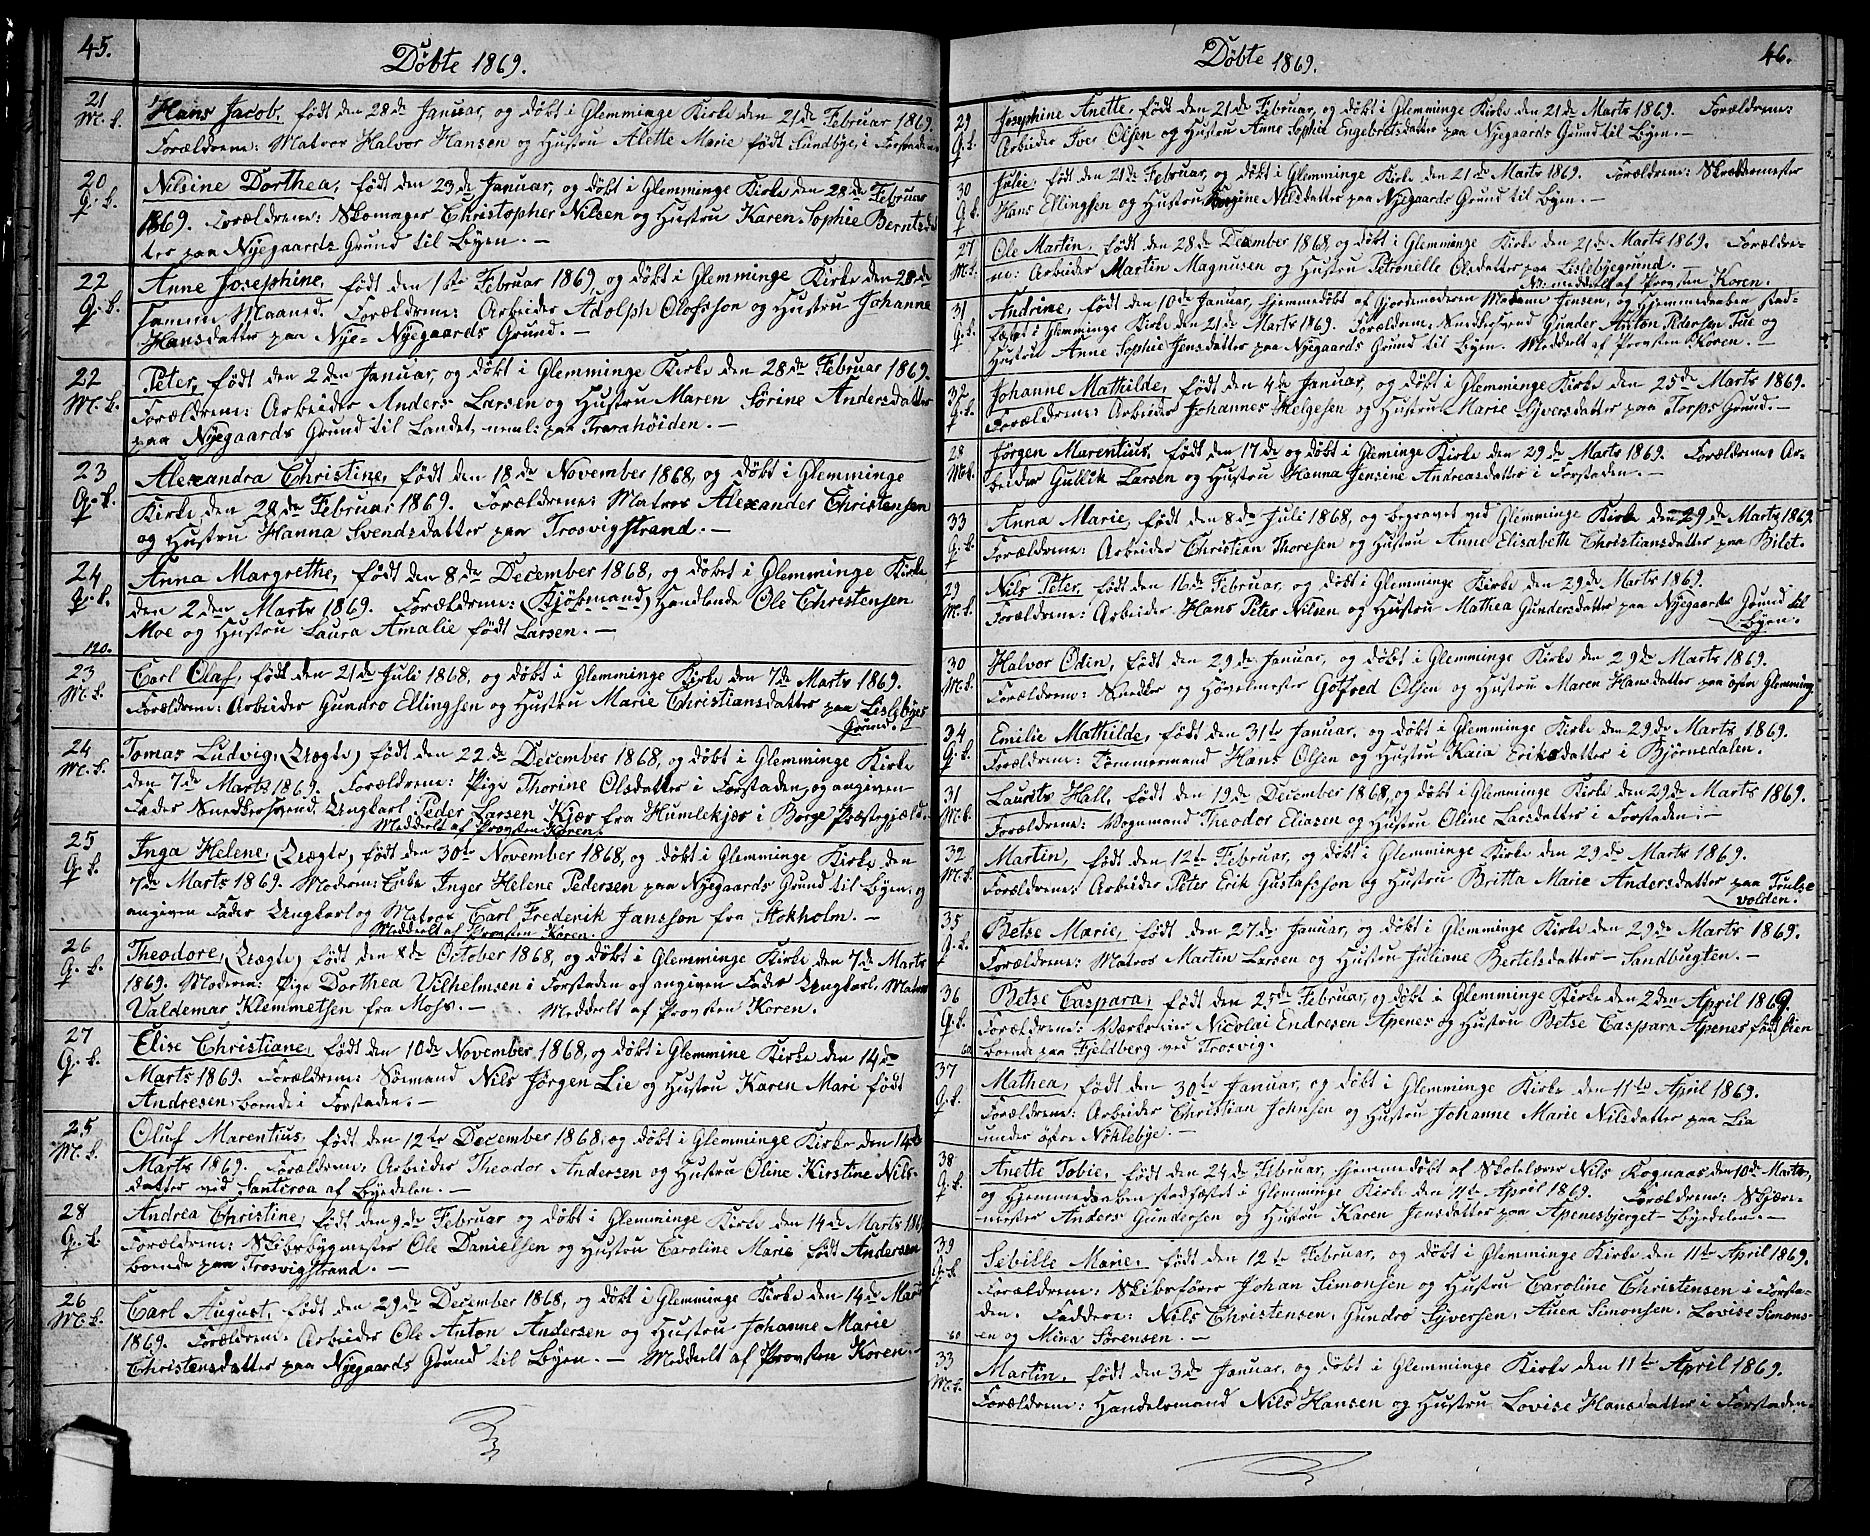 45.
Döbte 1869.
21 M. k.
Hans Jacob, födt den 28de Januar, og döbt i Glemminge Kirke den 21de Februar 1869.
Forældrene: Matros Halvor Hansen og Hustru Alette Marie födt Sundbye, i Forstaden
20 Q. k.
Nilsine Dorthea, födt den 23de Januar, og döbt i Glemminge Kirke den 28de Februar
1869. Forældrene: Skomager Christopher Nilsen og Hustru Karen Sophie Berntsdat
ter paa Nyegaards Grund til Byen. —
22 Q. k.
Anne Josephine, födt den 1ste Februar 1869, og döbt i Glemminge Kirke den 28de
samme Maaned. Forældrene: Arbeider Adolph Olofsson og Hustru Johanne
Hansdatter paa Nye-Nyegaards Grund. —
22 M. k.
Peter, födt den 2den Januar, og döbt i Glemminge Kirke den 28de Februar 1869.
Forældrene: Arbeider Anders Larsen og Hustru Maren Sörine Andersdatter
paa Nyegaards Grund til Landet, neml: paa Trarahöiden. —
23 Q. k.
Alexandra Christine, födt den 18de November 1868, og döbt i Glemminge
Kirke den 28de Februar 1869. Forældrene: Matros Alexander Christensen
og Hustru Hanna Svendsdatter paa Trosvigstrand. —
24 Q. k.
Anna Margrethe, födt den 8de December 1868, og döbt i Glemminge Kirke
den 2den Marts 1869. Forældrene: (Kjöbmand) Handlende Ole Christensen
Moe og Hustru Laura Amalie födt Larsen. —
120.
23 M. k.
Carl Olaf, födt den 21de Juli 1868, og döbt i Glemminge Kirke den 7de Marts 1869.
Forældrene: Arbeider Gundro Ellingsen og Hustru Marie Christiansdatter paa Lislebyes
Grund. —
24 M. k.
Tomas Ludvig, (Uægte) födt den 22de December 1868, og döbt i Glemminge Kirke
den 7de Marts 1869. Forældrene: Pige Thorine Olsdatter i Forstaden, og angiven
Fader Snedkersvend, Ungkarl Peder Larsen Kjær fra Humlekjær i Borge Præstegjeld.
Meddeelt af Provsten Koren.
25 Q. k.
Inga Helene, (Uægte) födt den 30te November 1868, og döbt i Glemminge Kirke den
7de Marts 1869. Moderen: Enke Inger Helene Pedersen paa Nyegaards Grund til Byen, og
angiven Fader Ungkarl og Matros Carl Frederik Jansson fra Stokholm. —
Meddeelt af Provsten Koren.
26 Q. k.
Theodore, (Uægte) födt den 8de October 1868, og döbt i Glemminge Kirke den 7de Marts
1869. Moderen: Pige Dorthea Vilhelmsen i Forstaden og angiven Fader Ungkarl, Matros
Valdemar Klemmetsen fra Moss. — Meddelt af Provsten Koren.
27 Q. k.
Elise Christiane, födt den 10de November 1868, og döbt i Glemmine Kirke den 14de
Marts 1869. Forældrene: Sömand Nils Jörgen Lie og Hustru Karen Mari födt
Andresen, boende i Forstaden. —
25 M. k.
Oluf Marentius, födt den 12te December 1868, og döbt i Glemminge Kirke den 14de
Marts 1869. Forældrene: Arbeider Theodor Andersen og Hustru Oline Kirstine Nils-
datter ved Santeroa af Byedelen. —
28 Q. k.
Andrea Christine, födt den 9de Februar og döbt i Glemminge Kirke den 14de Marts 1869
Forældrene: Skibsbygmester Ole Danielsen og Hustru Caroline Marie födt Andersen
boende paa Trosvigstrand. —
26 M. k.
Carl August, födt den 29de December 1868, og döbt i Glemminge Kirke den 14de Marts
1869. Forældrene: Arbeider Ole Anton Andersen og Hustru Johanne Marie
Christensdatter paa Nyegaards Grund til Byen. — Meddelt af Provsten Koren. —
Döbte 1869.
46.
29 Q. k.
Josephine Anette, födt den 21de Februar, og döbt i Glemminge Kirke den 21de Marts 1869. Forældrene:
Arbeider Iver Olsen og Hustru Anne Sophie Engebretsdatter paa Nyegaards Grund til Byen. —
30 Q. k.
Julie, födt den 21de Februar, og döbt i Glemminge Kirke den 21de Marts 1869. Forældrene: Skræddermester
Hans Ellingsen og Hustru Regine Nilsdatter paa Nyegaards Grund til Byen. —
27 M. k.
Ole Martin, födt den 28de December 1868, og döbt i Glemminge Kirke den 21de Marts 1869. Forældre-
ne: Arbeider Martin Magnusen og Hustru Petronelle Olsdatter paa Lislebyegrund.
No: meddelt af Provsten Koren.
31 Q. k.
Andrine, födt den 10de Januar, hjemmedöbt af Gjordemoderen Madame Jensen, og Hjemmedaaben stad-
fæstet i Glemminge Kirke den 21de Marts 1869. Forældrene: Snedkersvend Gunder Anton Pedersen Tue og
Hustru Anne Sophie Jensdatter paa Nyegaards Grund til Byen. Meddelt af Provsten Koren. —
32 Q. k.
Johanne Mathilde, födt den 4de Januar, og döbt i Glemminge Kirke den 25de Marts 1869.
Forældrene: Arbeider Johannes Helgesen og Hustru Marie Syversdatter paa Torps Grund. —
28 M. k.
Jörgen Marentius, födt den 17de og döbt i Gleminge Kirke den 29de Marts 1869. Forældrene: Ar-
beider Gullik Larsen og Hustru Hanna Jensine Andreasdatter i Forstaden. —
33 Q. k.
Anna Marie, födt den 8de Juli 1868, og begravet ved Glemminge Kirke den 29de Marts 1869
Forældrene: Arbeider Christian Thoresen og Hustru Anne Elisabeth Christiansdatter paa Bilet.
29 M. k.
Nils Peter, födt den 16de Februar, og döbt i Glemminge Kirke den 29de Marts 1869.
Forældrene: Arbeider Hans Peter Nilsen og Hustru Mathea Gundersdatter paa Nyegaards Grund til
Byen. —
30 M. k.
Halvor Odin, födt den 29de Januar, og döbt i Glemminge Kirke den 29de Marts 1869.
Forældrene: Snedker og Hövelmester Gotfred Olsen og Hustru Maren Hansdatter paa östre Glemming.
34 Q. k.
Emilie Mathilde, födt den 31te Januar, og döbt i Glemminge Kirke den 29de Marts 1869.
Forældrene: Tömmermand Hans Olsen og Hustru Kaia Eriksdatter i Bjørnedalen.
31 M. k.
Laurits Hall, födt den 19de December 1868, og döbt i Glemminge Kirke den 29de Marts 1869.
Forældrene: Vognmand Theodor Eliasen og Hustru Oline Larsdatter i Forstaden. —
32 M. k.
Martin, födt den 12te Februar, og döbt i Glemminge Kirke den 29de Marts 1869.
Forældrene: Arbeider Peter Erik Gustafsson og Hustru Britta Marie Andersdatter paa Trulse
volden.
35 Q. k.
Betse Marie, födt den 27de Januar, og döbt i Glemminge Kirke den 29de Marts 1869.
Forældrene: Matros Martin Larsen og Hustru Juliane Bertilsdatter — Sandbugten. —
36 Q. k.
Betse Caspara, födt den 25de Februar, og döbt i Glemminge Kirke den 2den April 1869.
Forældrene: Værkseier Nicolai Endresen Apenes og Hustru Betse Caspara Apenes födt Bien
60
boende paa Fjeldberg ved Trosvig.
37 Q. k.
Mathea, födt den 30te Januar, og döbt i Glemminge Kirke den 11te April 1869.
Forældrene: Arbeider Christian Johnsen og Hustru Johanne Marie Nilsdatter paa Lia
under östre Nöklebye. —
38 Q. k.
Anette Tobie, födt den 24de Februar, hjemmedöbt af Skolelærer Nils Rognaas den 10de Marts,
og Hjemmedaaben stadfæstet i Glemminge Kirke den 11te April 1869. Forældrene: Skjær-
mester Anders Gundersen og Hustru Karen Jensdatter paa Apenesbjerget - Byedelen. —
39 Q. k.
Sebille Marie, födt den 12te Februar, og döbt i Glemminge Kirke den 11te April 1869.
Forældrene: Skibsförer Johan Simonsen og Hustru Caroline Christensen i Forsta-
den. Faddere: Nils Christensen, Gundro Syversen, Auen Simonsen, Lovise Simons-
60
en og Mina Sörensen. —
33 M. k.
Martin, födt den 3de Januar, og döbt i Glemminge Kirke den 11te April 1869.
Forældrene: Handelsmand Nils Hansen og Hustru Lovise Hansdatter i Forstaden.